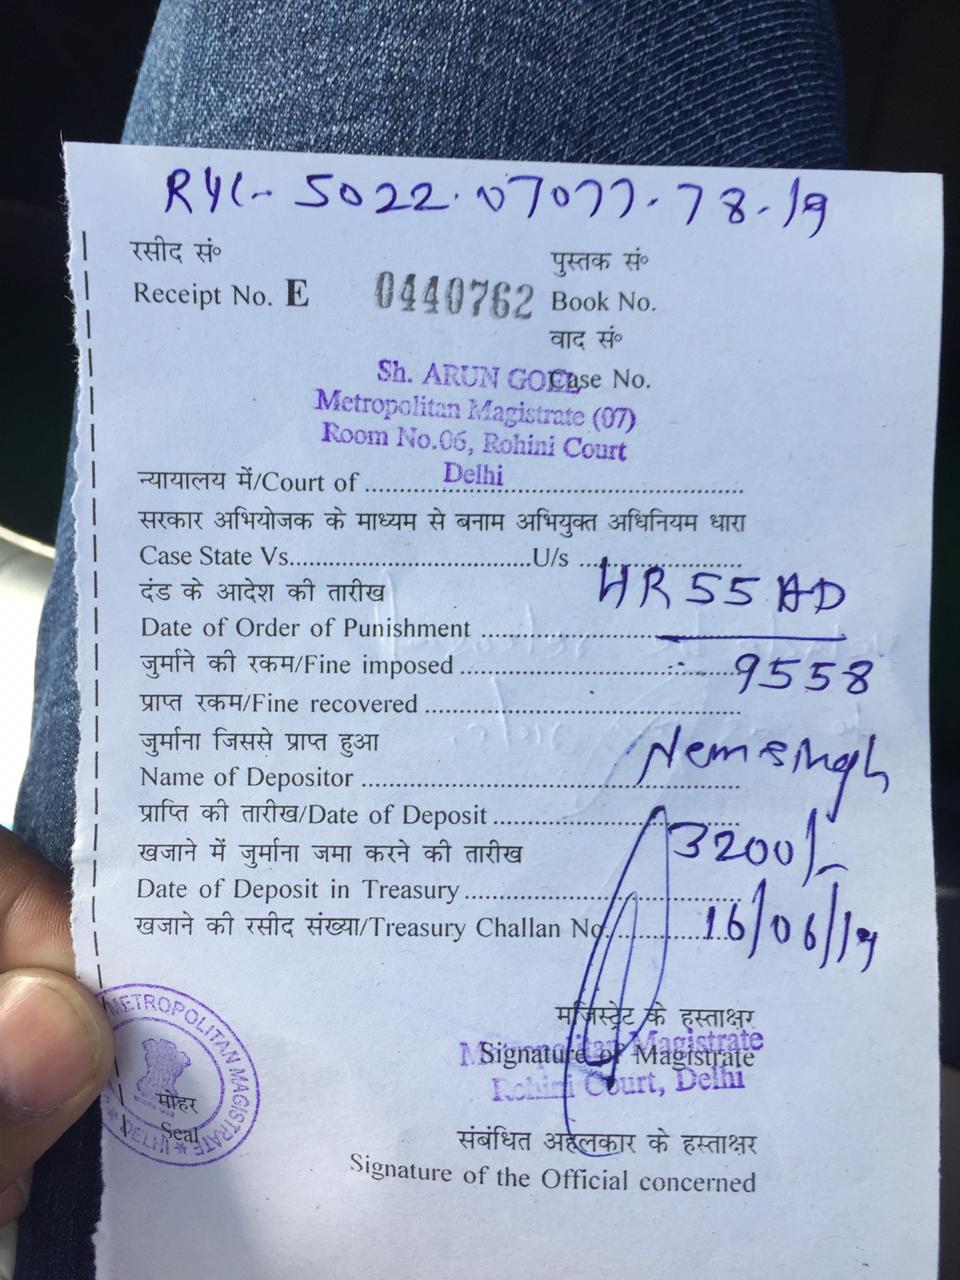 RYC- 5022-07077-78-19
रसीद सं०
Receipt No. E 0440762
पुस्तक सं०
Book No.
वाद सं०
Case No.
Sh. ARUN GOEL
Metropolitan Magistrate (07)
Room No.06, Rohini Court
Delhi
न्यायालय में/Court of
सरकार अभियोजक के माध्यम से बनाम अभियुक्त अधिनियम धारा
Case State Vs. U/s
HR 55 AD
दंड के आदेश की तारीख
Date of Order of Punishment
जुर्माने की रकम/Fine imposed 9558
प्राप्त रकम/Fine recovered
जुर्माना जिससे प्राप्त हुआ
Name of Depositor Nemsingh
प्राप्ति की तारीख/Date of Deposit
3200/-
खजाने में जुर्माना जमा करने की तारीख
Date of Deposit in Treasury
खजाने की रसीद संख्या/Treasury Challan No. 16/06/19
मजिस्ट्रेट के हस्ताक्षर
Signature of Magistrate
Metropolitan Magistrate
Rohini Court, Delhi
METROPOLITAN MAGISTRATE
DELHI
मोहर
Seal
संबंधित अहलकार के हस्ताक्षर
Signature of the Official concerned